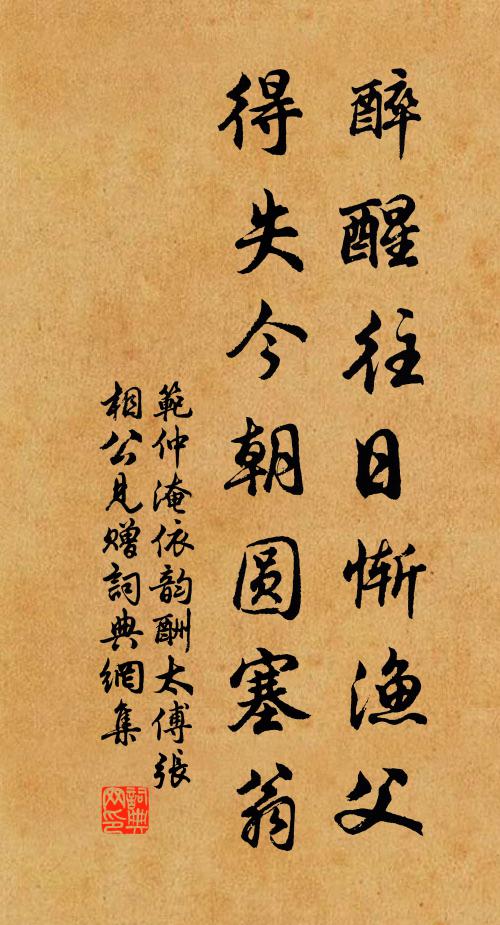 醉醒往日慚渔父
得失今朝圆塞翁
範仲淹依韵酬太傅張
相公見贈詞典網集
詞典
网印